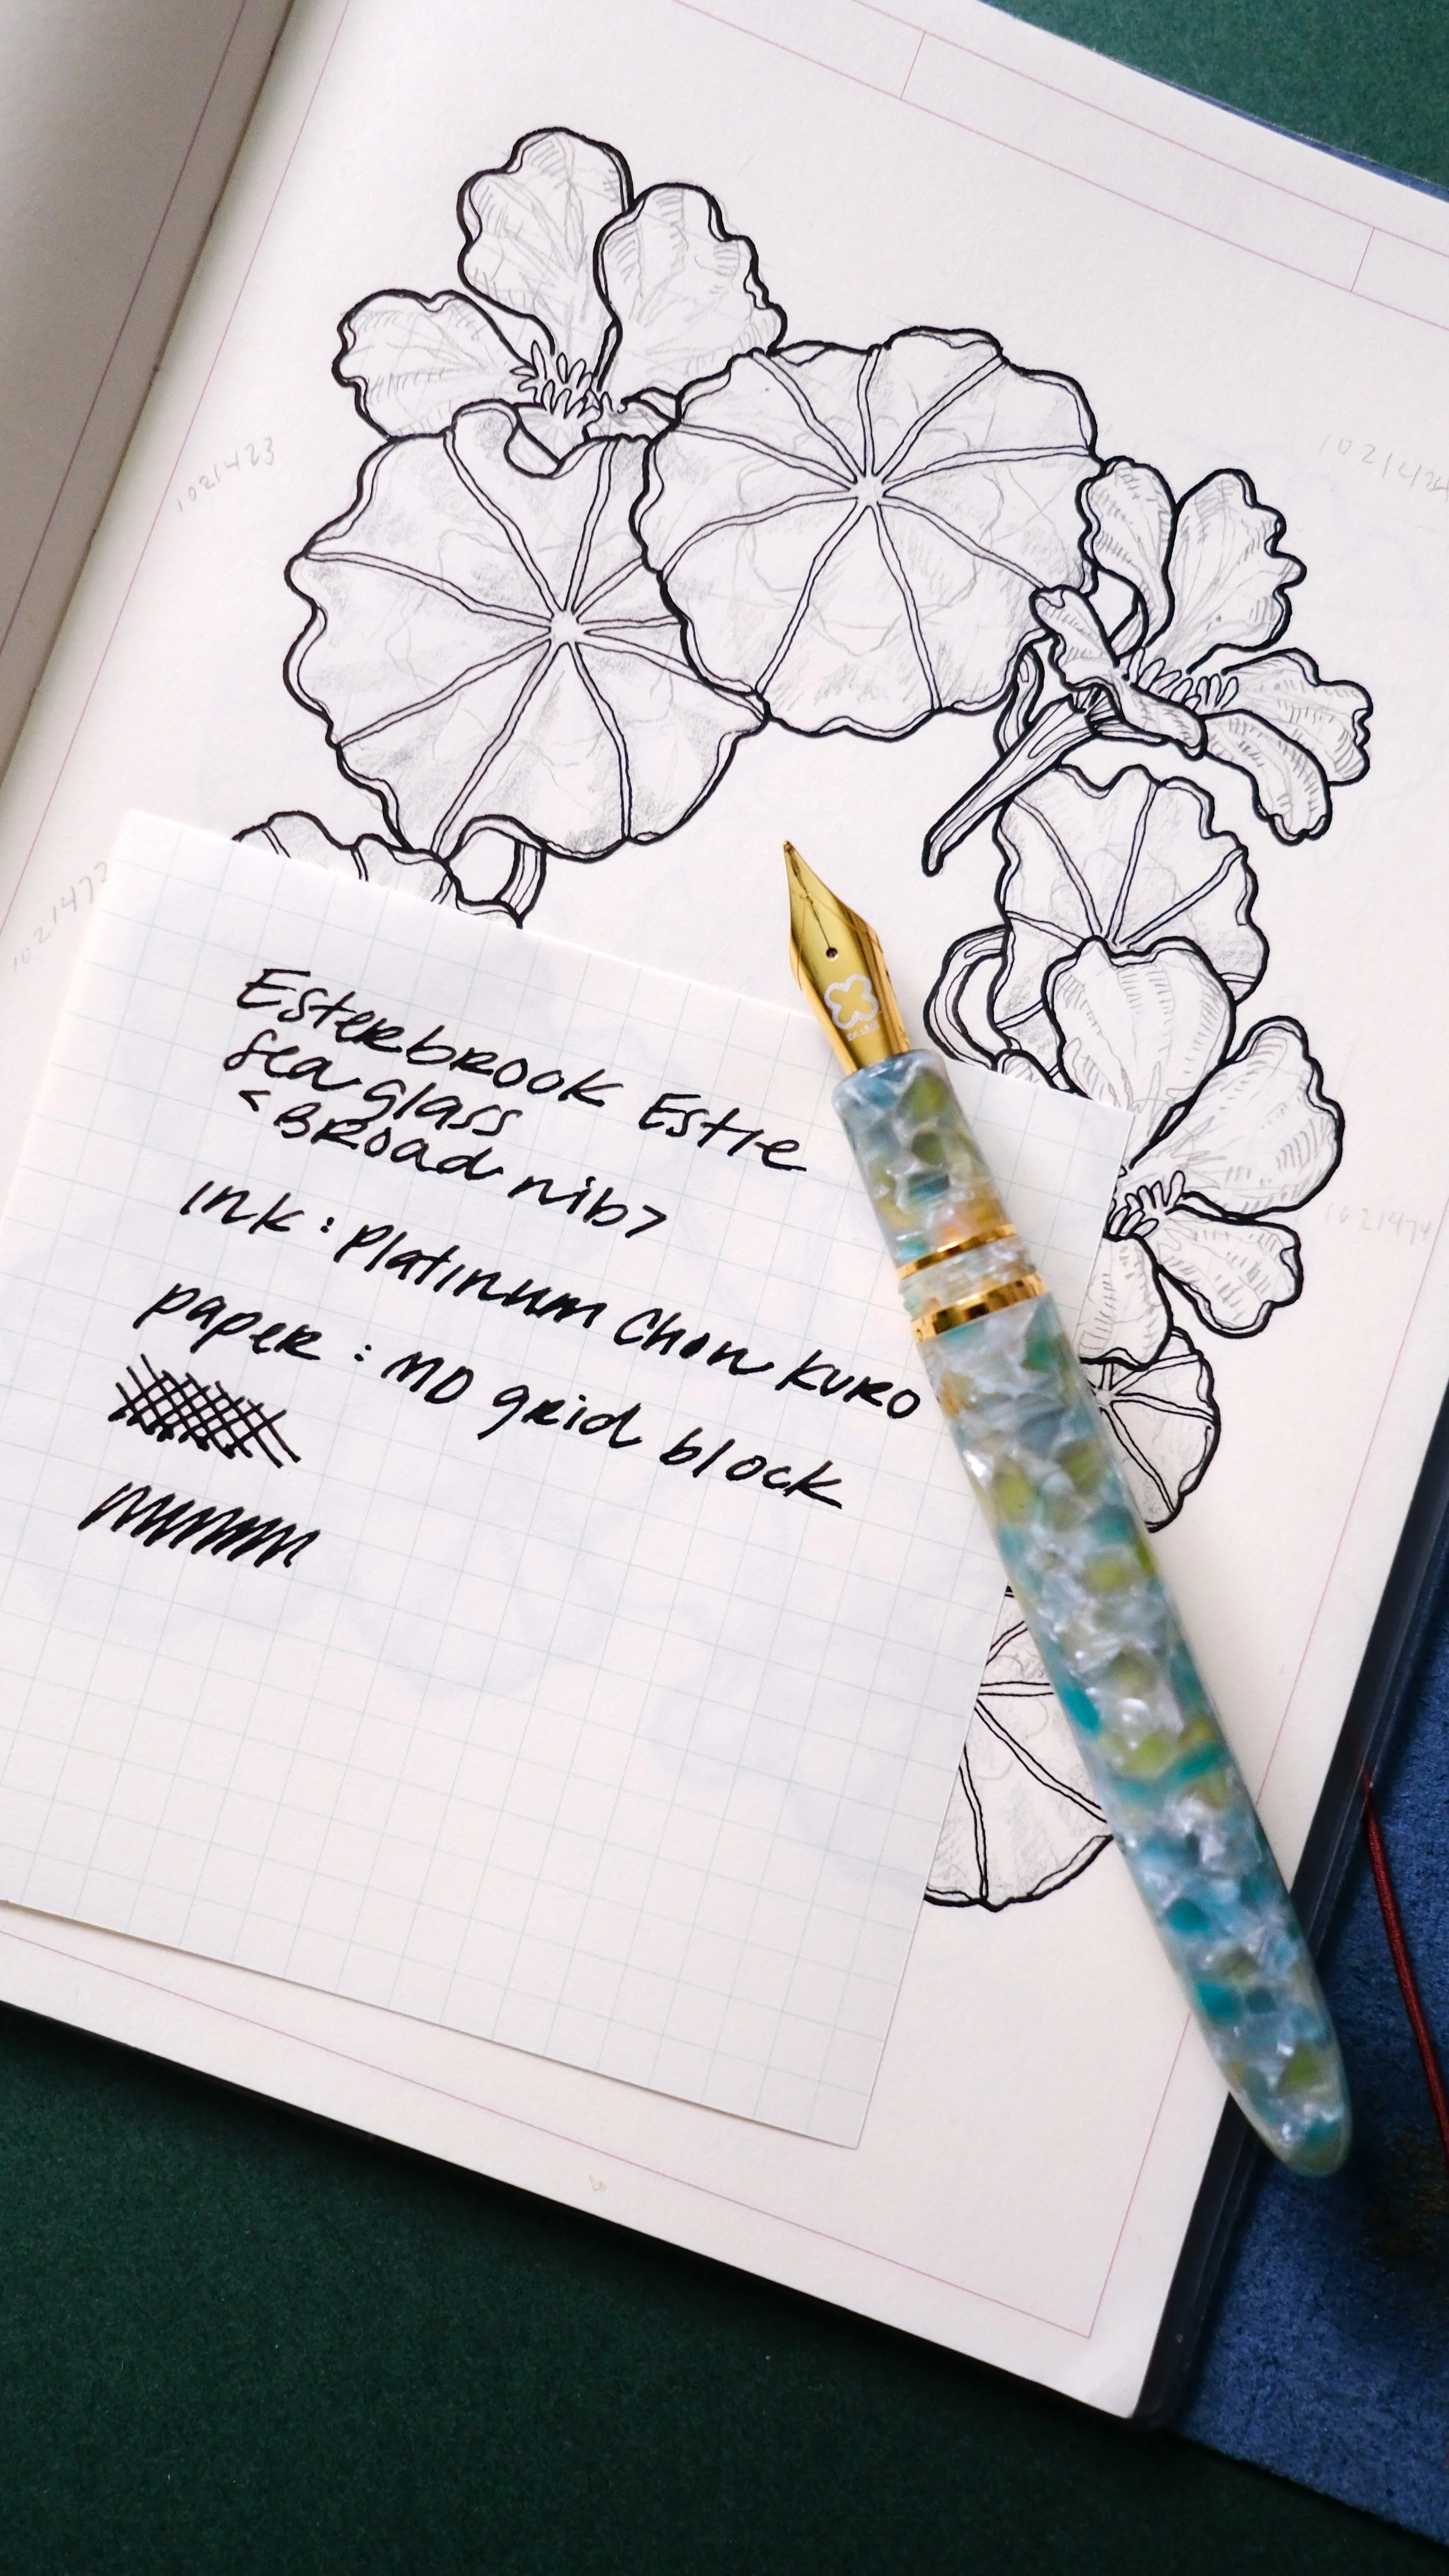 Esterbrook Estie
sea glass
<Broad nib>
ink : Platinum Chou Kuro
paper : MD grid block
1021423
1021472
1021474